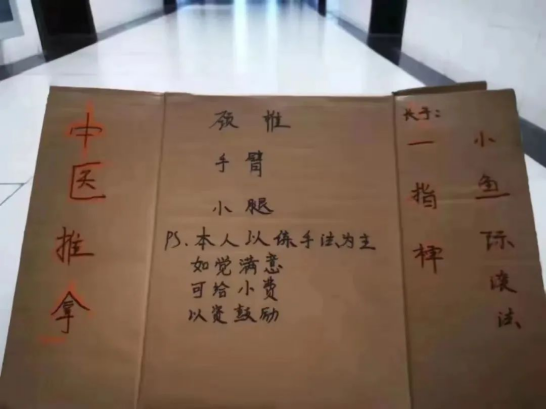 中医推拿
颈椎
手臂
小腿
PS.本人以练手法为主
如觉满意
可给小费
以资鼓励
长于：
一指禅
小鱼际滚法